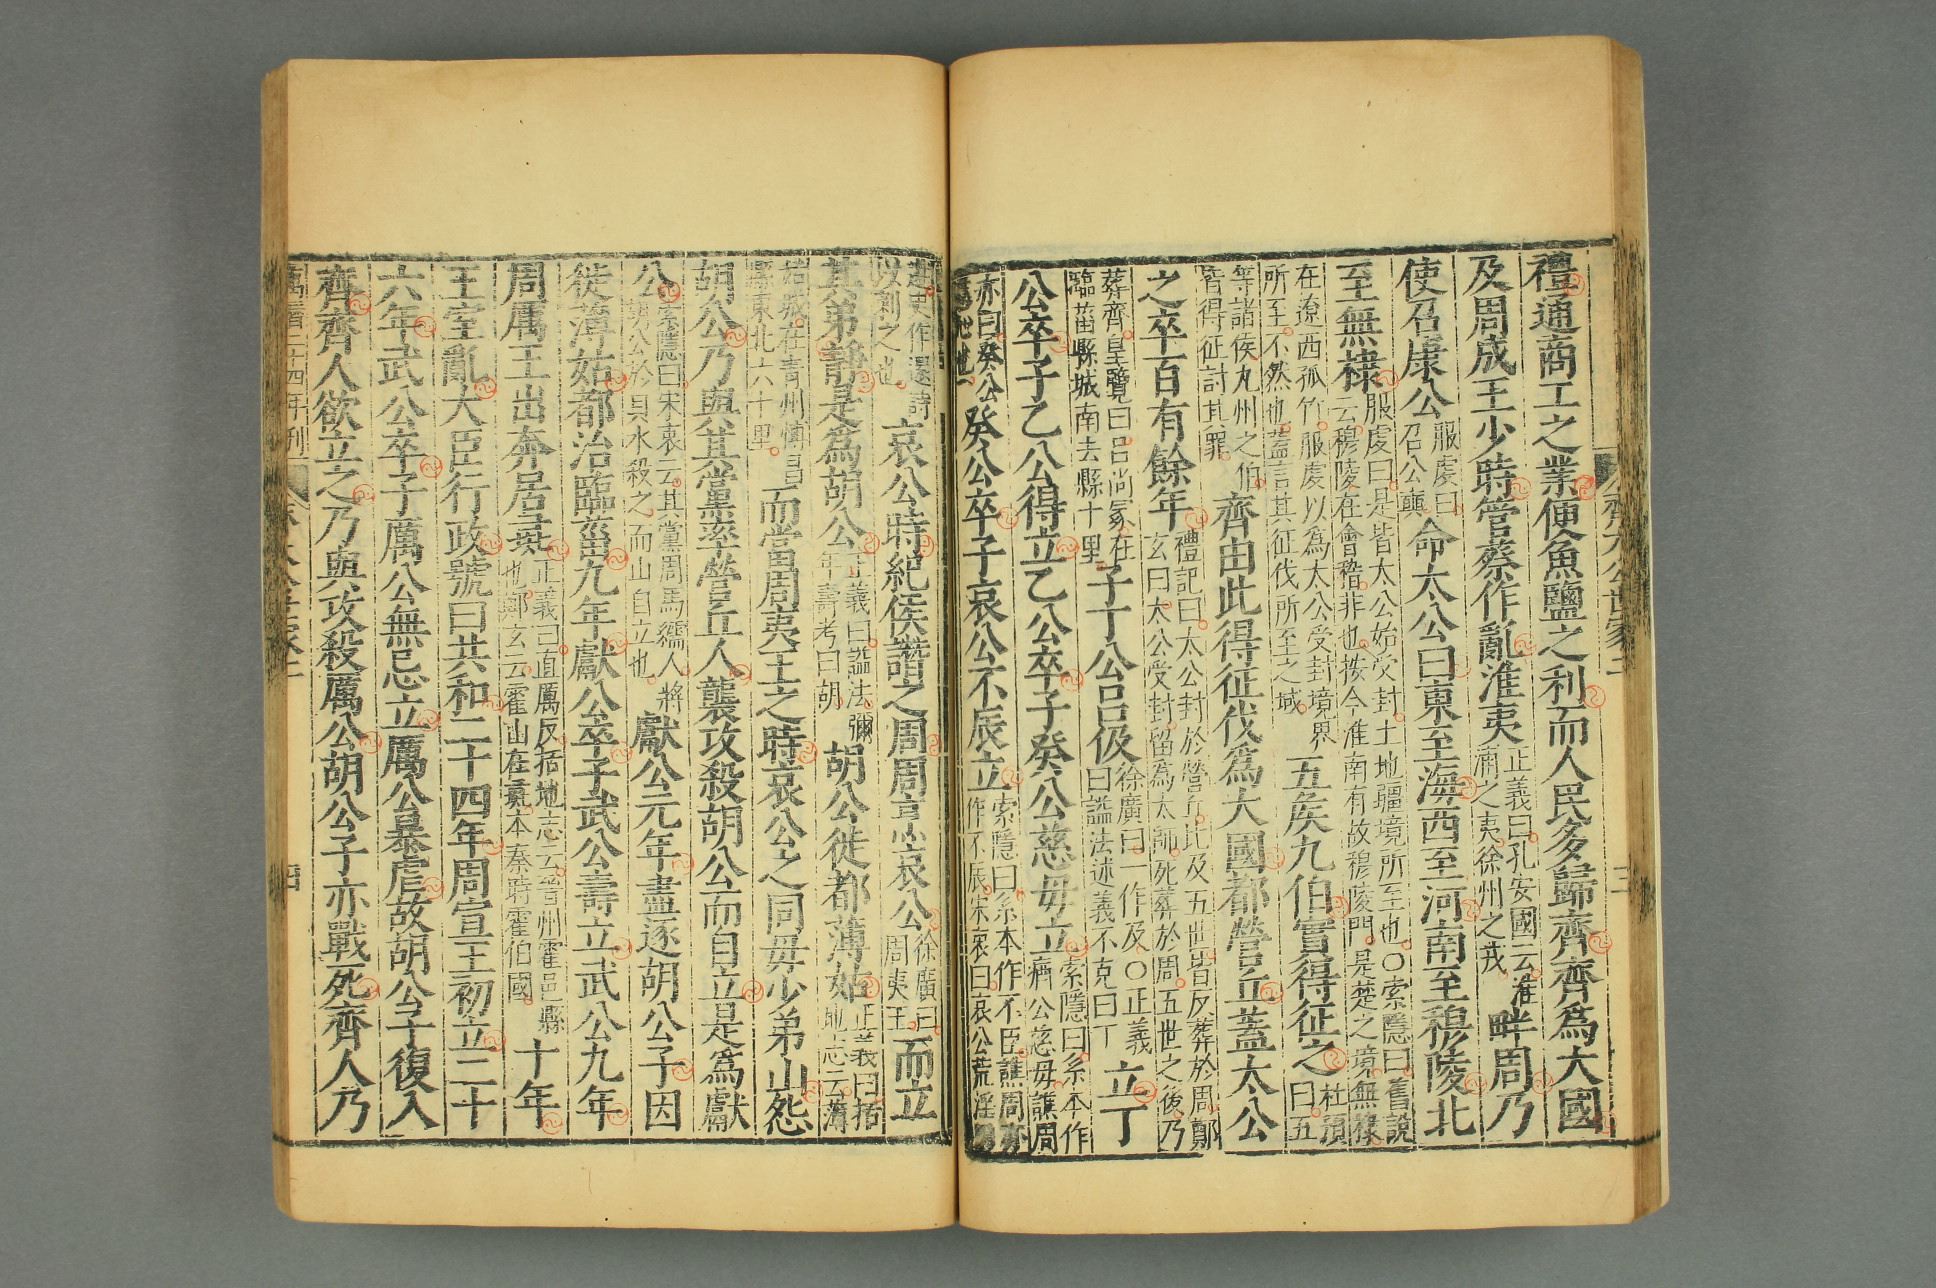 禮通商工之業便魚鹽之利而人民多歸齊齊爲大國
及周成王少時管蔡作亂淮夷正義曰孔安國云淮浦之夷徐州之戎畔周乃
使召康公服虔曰召公奭命太公曰東至海西至河南至穆陵北
至無棣服虔曰是皆太公始受封土地疆境所至也○索隱曰舊說云穆陵在會稽非也按今淮南有故穆陵門是楚之境無棣
在遼西孤竹服虔以爲太公受封境界所至不然也蓋言其征伐所至之域五侯九伯實得征之杜預曰五
等諸侯九州之伯皆得征討其罪齊由此得征伐爲大國都營丘蓋太公
之卒百有餘年禮記曰太公封於營丘比及五世皆反葬於周鄭玄曰太公受封留爲太師死葬於周五世之後乃
葬齊皇覽曰呂尚冢在臨菑縣城南去縣十里子丁公呂伋徐廣曰一作及○正義曰謚法述義不克曰丁立丁
公卒子乙公得立乙公卒子癸公慈母立索隱曰系本作癠公慈母譙周
亦曰癸公慈母也癸公卒子哀公不辰立索隱曰系本作不臣譙周亦作不辰宋衷曰哀公荒淫
哀公時紀侯譖之周周烹哀公徐廣曰周夷王而立
其弟靜是爲胡公正義曰謚法彌年壽考曰胡胡公徙都薄姑正義曰括地志云薄
姑城在青州博昌縣東北六十里而當周夷王之時哀公之同母少弟山怨
胡公乃與其黨率營丘人襲攻殺胡公而自立是爲獻
公索隱曰宋衷云其黨周馬繻人將胡公於貝水殺之而山自立也獻公元年盡逐胡公子因
徙薄姑都治臨菑九年獻公卒子武公壽立武公九年
周厲王出奔居彘正義曰直厲反括地志云晉州霍邑縣也鄭玄云霍山在彘本秦時霍伯國十年
王室亂大臣行政號曰共和二十四年周宣王初立二十
六年武公卒子厲公無忌立厲公暴虐故胡公子復入
齊齊人欲立之乃與攻殺厲公胡公子亦戰死齊人乃